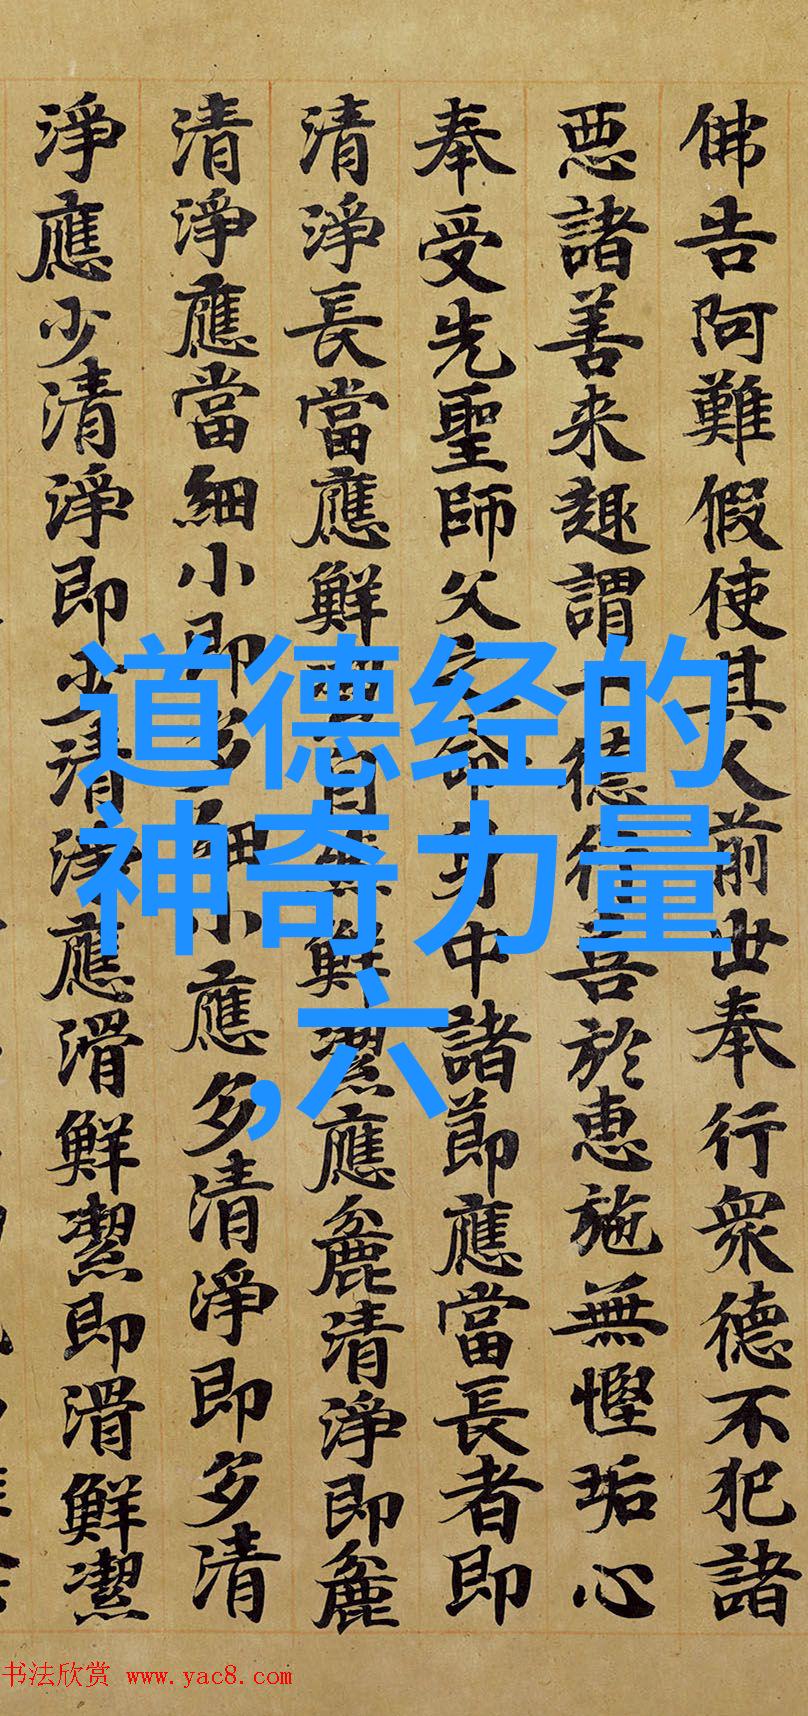 佛告阿難假使其人前世奉行衆德不犯諸
惡諸善来趣謂德行吾於恵施無慳垢心
奉受先聖師父之命身中諸節應當長者即
清淨長當應鮮自無鮮潔應麁清淨即麁
清淨應當細小即多細小應多清淨即多清
淨應少清淨即少清淨應滑鮮潔即滑鮮潔
道德经的
神奇力量
,六
书法欣赏 www.yac8.com